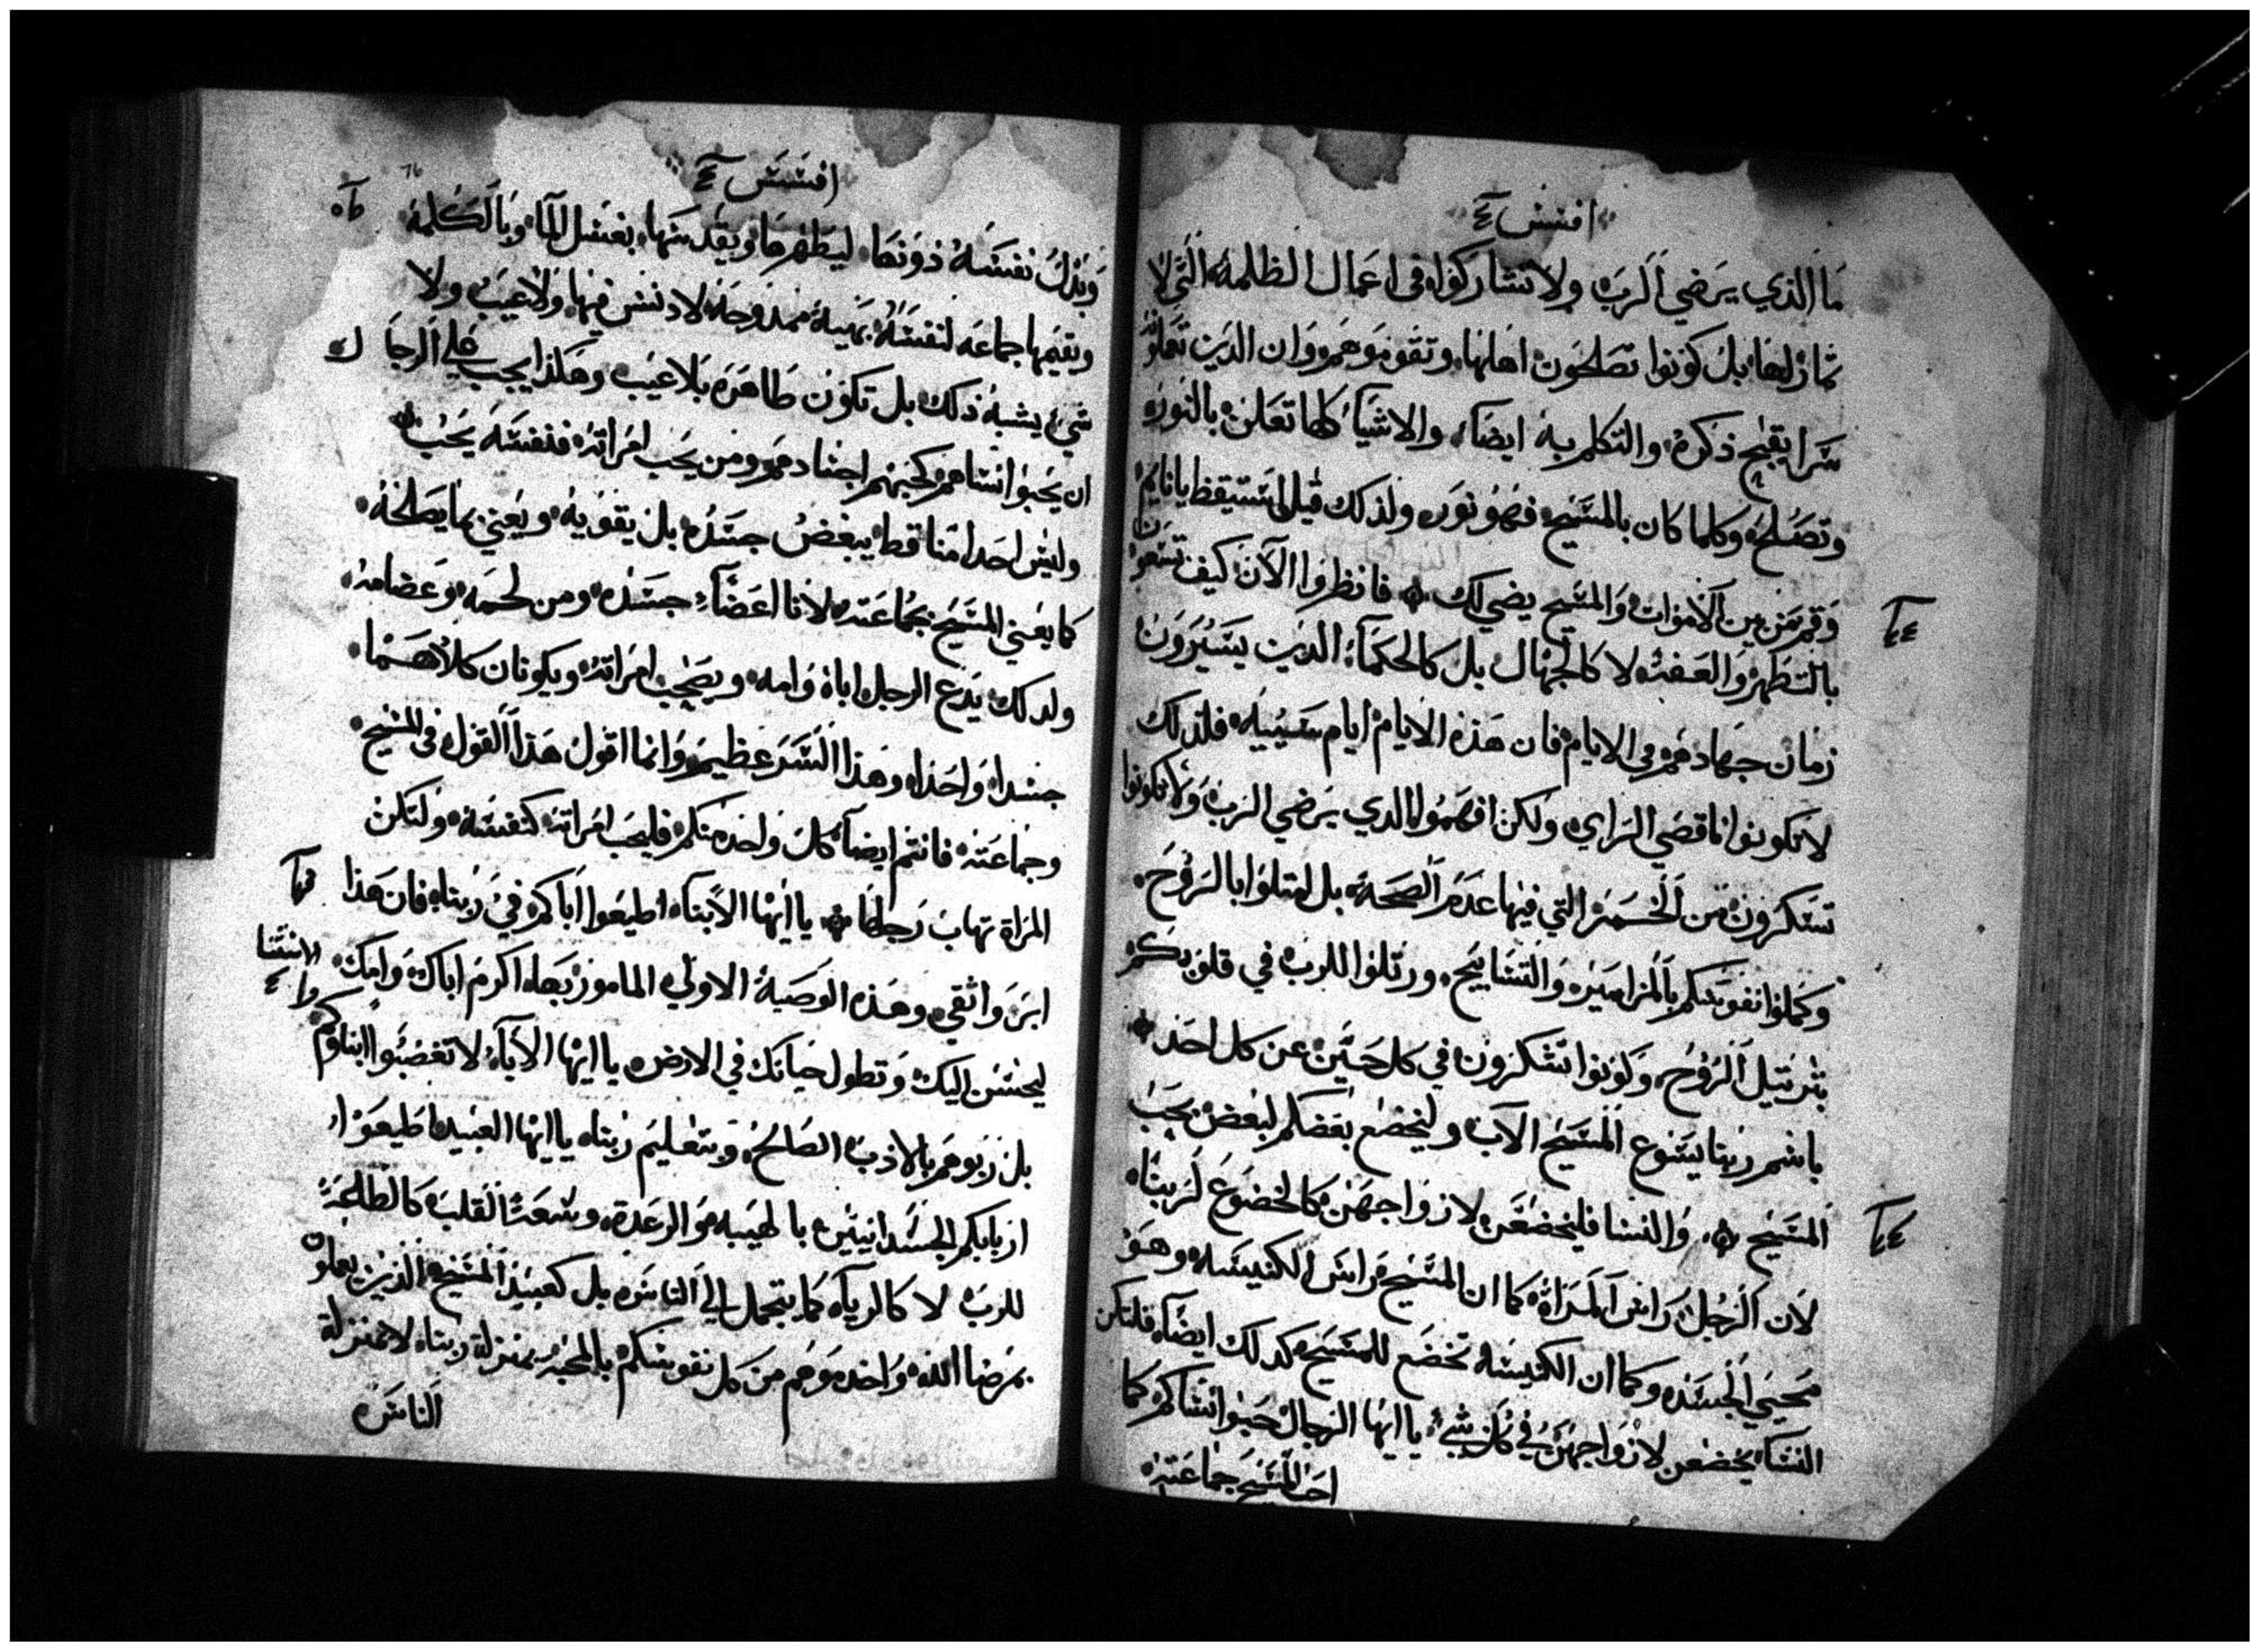 افسس ٤
ما الذي يرضي الرب ولا تشاركوا في اعمال الظلمة التي لا
ثمار لها بل كونوا تصلحون اهلها وتقوموهم وان الذين تعملوا
سرا يقبح ذكره والتكلم به ايضا والاشيا كلها تعلن بالنور
وتصلح وكلما كان بالمسيح فهو نور ولذلك قيل استيقظ يا نايم
وقم من بين الاموات والمسيح يضي لك فانظروا الان كيف تسعون
بالتطهر والعفه لا كالجهال بل كالحكماء الذين يسيرون
زمان جهادهم في الايام فان هذه الايام ايام سييه فلذلك
لا تكونوا ناقصي الراي ولكن افهموا ما الدي يرضي الرب ولا تكونوا
تسكرون من الخمر التي فيها عدم الصحة بل امتلوا بالروح
وكملوا نفوسكم بالمزامير والتسابيح ورتلوا للرب في قلوبكم
بترتيل الروح وكونوا تشكرون في كل حين عن كل احد
باسم ربنا يسوع المسيح الاب وليخضع بعضكم لبعض بحب
المسيح والنسا فليخضعن لازواجهن كالخضوع لربنا
لان الرجل راس المراة كما ان المسيح راس الكنيسه وهو
محيي الجسد وكما ان الكنيسة تخضع للمسيح كدلك ايضا فلتكن
النسا يخضعن لازواجهن في كل شيء يا ايها الرجال حبوا نساكم كما
احب المسيح جماعته
افسس ٤
وبذل نفسه دونها ليطهرها ويقدسها بغسل الما وبالكلمة
ويقيمها جماعه لنفسه بهية ممدوحة لا دنس فيها ولا عيب ولا
شيء يشبه ذلك بل تكون طاهرة بلا عيب وهكذا يجب على الرجال
ان يحبوا نساهم كحبهم اجسادهم ومن يحب امراته فنفسه يحب
وليس احدا منا قط يبغض جسده بل يقويه ويعني بما يصلحه
كما يعني المسيح بجماعته لانا اعضاء جسده ومن لحمه وعضامه
ولدلك يدع الرجل اباه وامه ويصحب امراته ويكونان كلاهما
جسدا واحدا وهذا السر عظيم وانما اقول هذا القول في المسيح
وجماعته فانتم ايضا كل واحد منكم فليحب امراته كنفسه ولتكن
المراة تهاب رجلها يا ايها الابناء اطيعوا اباكم في ربنا فان هذا
ابر واتقي وهذه الوصية الاولي المامور بها اكرم اباك وامك
ليحسن اليك وتطول حياتك في الارض يا ايها الاباء لا تغضبوا ابناوكم
بل ربوهم بالادب الصالح وبتعليم ربنا يا ايها العبيد اطيعوا
اربابكم الجسدانيين بالهيبه والرعدة وسعة القلب كالطاعة
للرب لا كالرياء كما يتجمل الي الناس بل كعبيد المسيح الذين يعملون
بمرضا الله واخدموهم من كل نفوسكم بالمحبه بمنزلة ربنا لا بمنزلة
الناس